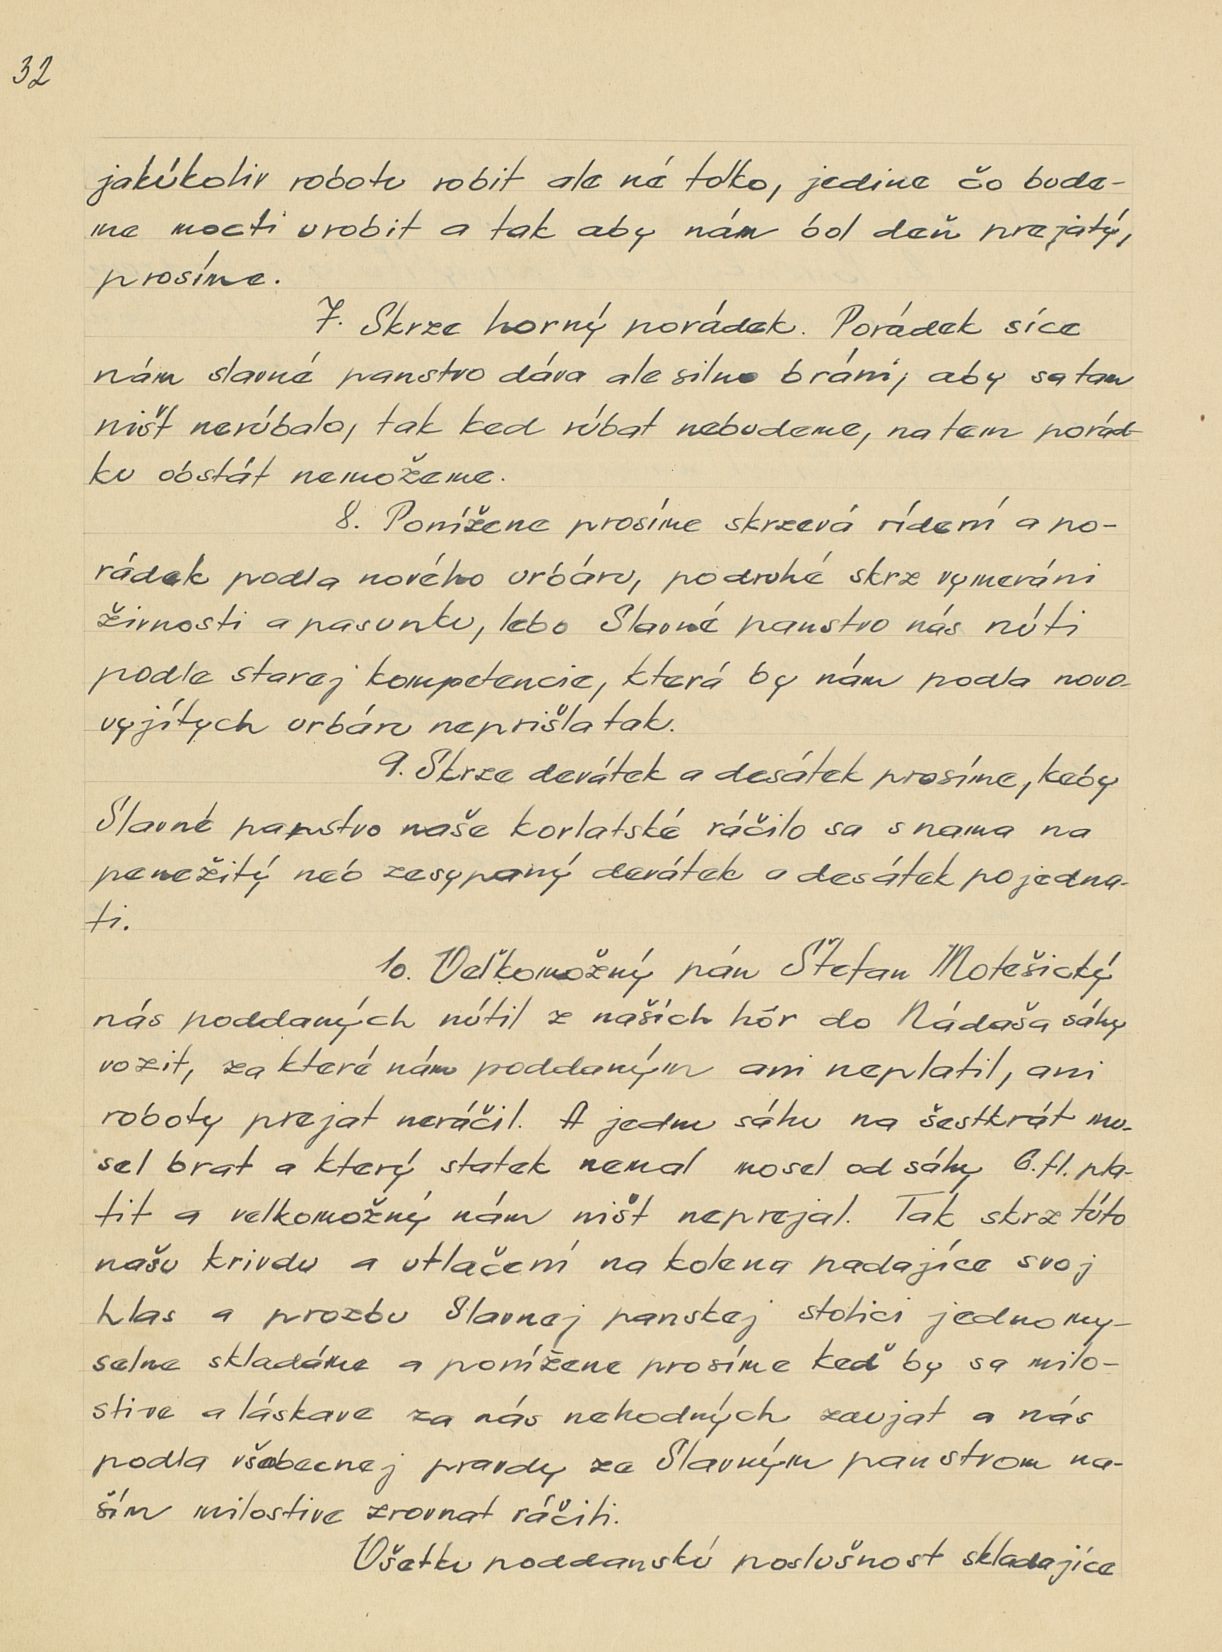 32
jakúkoliv robotu robit ale né toľko, jedine čo bude-
me mocti urobit a tak aby nám bol deň prejatý,
prosíme.
7. Skrze horný porádek. Porádek síce
nám slavné panstvo dáva ale silno bráni, aby sa tam
ništ nerúbalo, tak ked rúbat nebudeme, na tem porád-
ku obstát nemožeme.
8. Ponížene prosíme skrzevá rídení a po-
rádek podla nového urbáru, podruhé skrz vymeráni
živnosti a pasunku, lebo Slavné panstvo nás núti
podle starej kompetencie, která by nám podla novo-
vyjítych urbáru neprišla tak.
9. Skrze devátek a desátek prosíme, keby
Slavné panstvo naše korlatské ráčilo sa s nama na
penežitý neb zesypaný devátek a desátek pojedna-
ti.
10. Veľkomožný pán Štefan Motešický
nás poddaných nútil z naších hôr do Nádaša sáhy
vozit, za které nám poddaným ani neplatil, ani
roboty prejat neráčil. A jednu sáhu na šestkrát mu-
sel brat a který statek nemal mosel od sáhy 6. fl. pla-
tit a velkomožný nám ništ neprejal. Tak skrz túto
našu krivdu a utlačení na kolena padajíce svoj
hlas a prozbu Slavnej panskej stolici jednomy-
selne skladáme a ponížene prosíme keď by sa milo-
stive a láskave za nás nehodných zaujat a nás
podla všebecnej pravdy ze Slavným panstvom na-
ším milostive zrovnat ráčili.
Všetku poddanskú poslušnost skladajíce